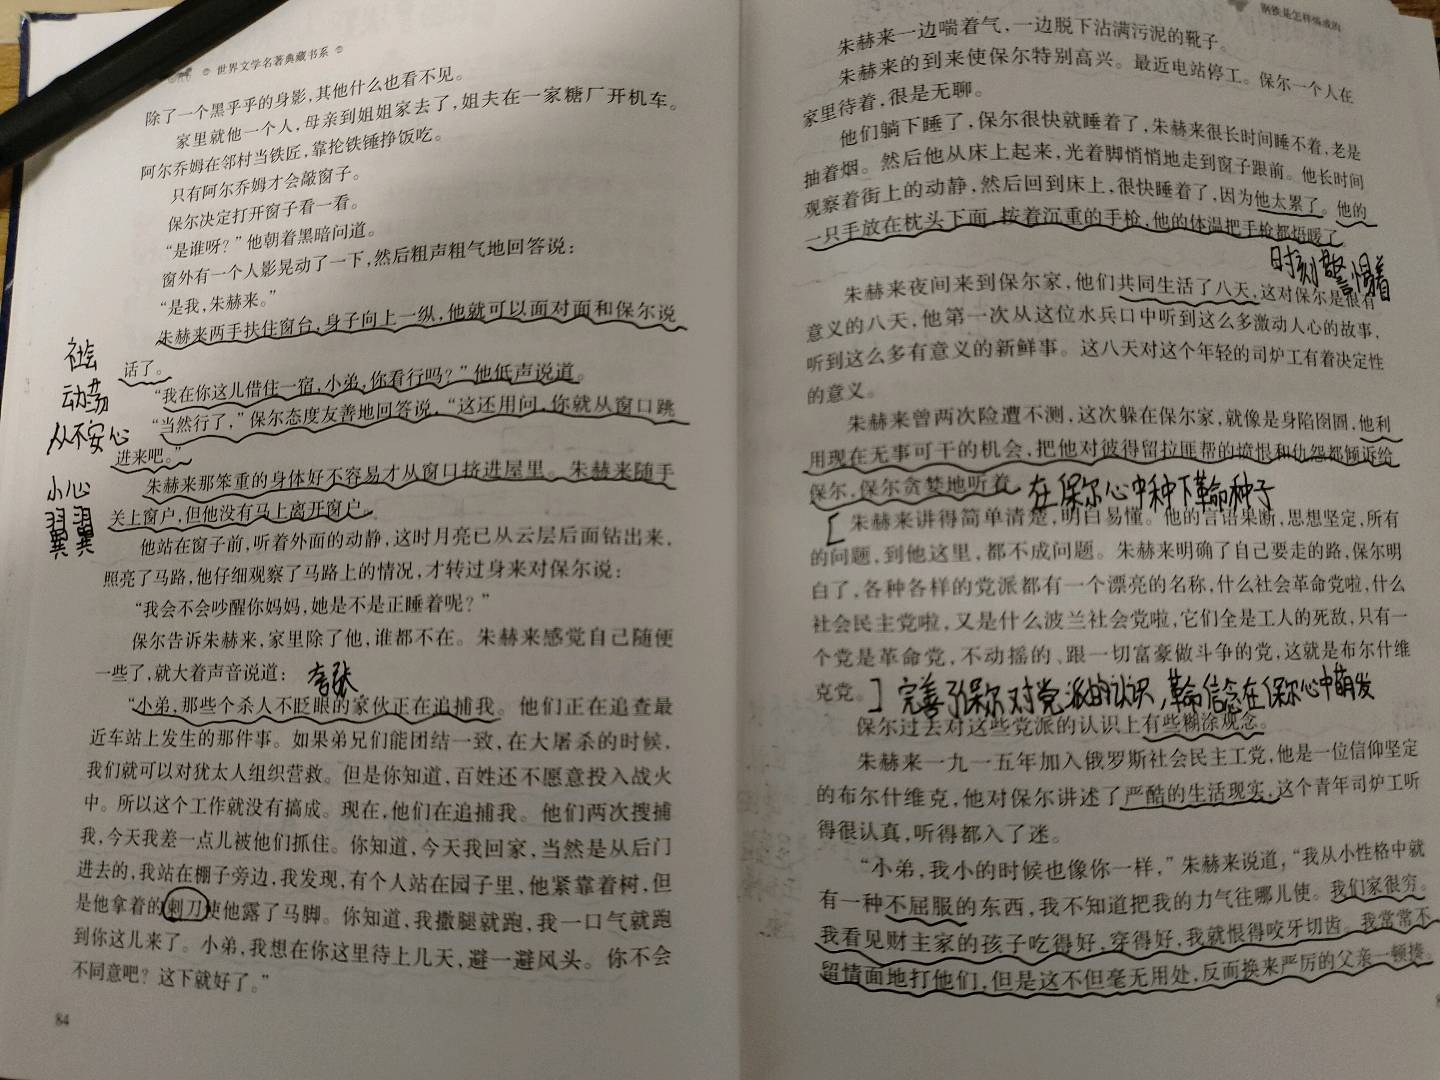 世界文学名著典藏书系
除了一个黑乎乎的身影，其他什么也看不见。
家里就他一个人，母亲到姐姐家去了，姐夫在一家糖厂开机车。
阿尔乔姆在邻村当铁匠，靠抡铁锤挣饭吃。
只有阿尔乔姆才会敲窗子。
保尔决定打开窗子看一看。
“是谁呀？”他朝着黑暗问道。
窗外有一个人影晃动了一下，然后粗声粗气地回答说：
“是我，朱赫来。”
朱赫来两手扶住窗台，身子向上一纵，他就可以面对面和保尔说
话了。
“我在你这儿借住一宿，小弟，你看行吗？”他低声说道。
“当然行了，”保尔态度友善地回答说，“这还用问，你就从窗口跳
进来吧。”
朱赫来那笨重的身体好不容易才从窗口挤进屋里。朱赫来随手
关上窗户，但他没有马上离开窗户。
他站在窗子前，听着外面的动静，这时月亮已从云层后面钻出来，
照亮了马路，他仔细观察了马路上的情况，才转过身来对保尔说：
“我会不会吵醒你妈妈，她是不是正睡着呢？”
保尔告诉朱赫来，家里除了他，谁都不在。朱赫来感觉自己随便
一些了，就大着声音说道：
夸张
“小弟，那些个杀人不眨眼的家伙正在追捕我。他们正在追查最
近车站上发生的那件事。如果弟兄们能团结一致，在大屠杀的时候，
我们就可以对犹太人组织营救。但是你知道，百姓还不愿意投入战火
中。所以这个工作就没有搞成。现在，他们在追捕我。他们两次搜捕
我，今天我差一点儿被他们抓住。你知道，今天我回家，当然是从后门
进去的，我站在棚子旁边，我发现，有个人站在园子里，他紧靠着树，但
是他拿着的刺刀使他露了马脚。你知道，我撒腿就跑，我一口气就跑
到你这儿来了。小弟，我想在你这里待上几天，避一避风头。你不会
不同意吧？这下就好了。”
84
社会
动荡
人心不安
小心
翼翼
钢铁是怎样炼成的
朱赫来一边喘着气，一边脱下沾满污泥的靴子。
朱赫来的到来使保尔特别高兴。最近电站停工。保尔一个人在
家里待着，很是无聊。
他们躺下睡了，保尔很快就睡着了，朱赫来很长时间睡不着，老是
抽着烟。然后他从床上起来，光着脚悄悄地走到窗子跟前。他长时间
观察着街上的动静，然后回到床上，很快睡着了，因为他太累了。他的
一只手放在枕头下面，按着沉重的手枪，他的体温把手枪都焐暖了。
时刻警惕着
朱赫来夜间来到保尔家，他们共同生活了八天，这对保尔是很有
意义的八天，他第一次从这位水兵口中听到这么多激动人心的故事，
听到这么多有意义的新鲜事。这八天对这个年轻的司炉工有着决定性
的意义。
朱赫来曾两次险遭不测，这次躲在保尔家，就像是身陷囹圄，他利
用现在无事可干的机会，把他对彼得留拉匪帮的愤恨和仇怨都倾诉给
保尔，保尔贪婪地听着。
在保尔心中种下革命种子
[朱赫来讲得简单清楚，明白易懂。他的言语果断，思想坚定，所有
的问题，到他这里，都不成问题。朱赫来明确了自己要走的路，保尔明
白了，各种各样的党派都有一个漂亮的名称，什么社会革命党啦，什么
社会民主党啦，又是什么波兰社会党啦，它们全是工人的死敌，只有一
个党是革命党，不动摇的、跟一切富豪做斗争的党，这就是布尔什维
克党。] 完善了保尔对党派的认识，革命信念在保尔心中萌发
保尔过去对这些党派的认识上有些糊涂观念。
朱赫来一九一五年加入俄罗斯社会民主工党，他是一位信仰坚定
的布尔什维克，他对保尔讲述了严酷的生活现实，这个青年司炉工听
得很认真，听得都入了迷。
“小弟，我小的时候也像你一样，”朱赫来说道，“我从小性格中就
有一种不屈服的东西，我不知道把我的力气往哪儿使。我们家很穷。
我看见财主家的孩子吃得好，穿得好，我就恨得咬牙切齿。我常常不
留情面地打他们，但是这不但毫无用处，反而换来严厉的父亲一顿揍。